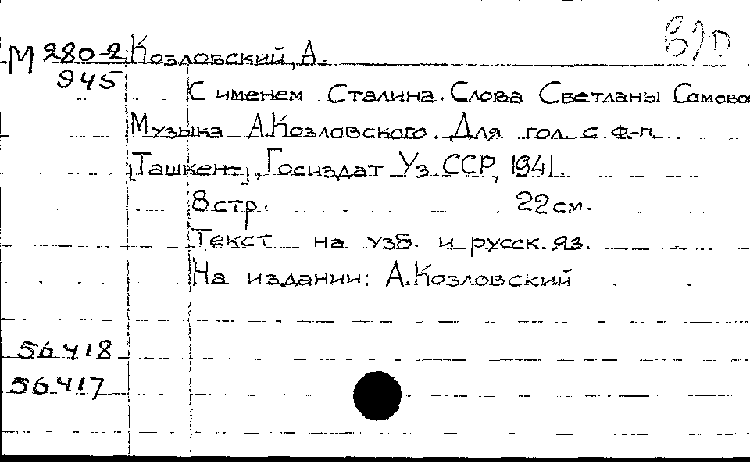 В/О
М 280-2 Козловский, А.
945
С именем Сталина. Слова Светланы Сомово
Музыка А.Козловского. Для гол. с ф-п.
[Ташкент], Госиздат УзССР, 1941.
8 стр. 22 см.
Текст на узб. и русск. яз.
На издании: А.Козловский
56418
56417